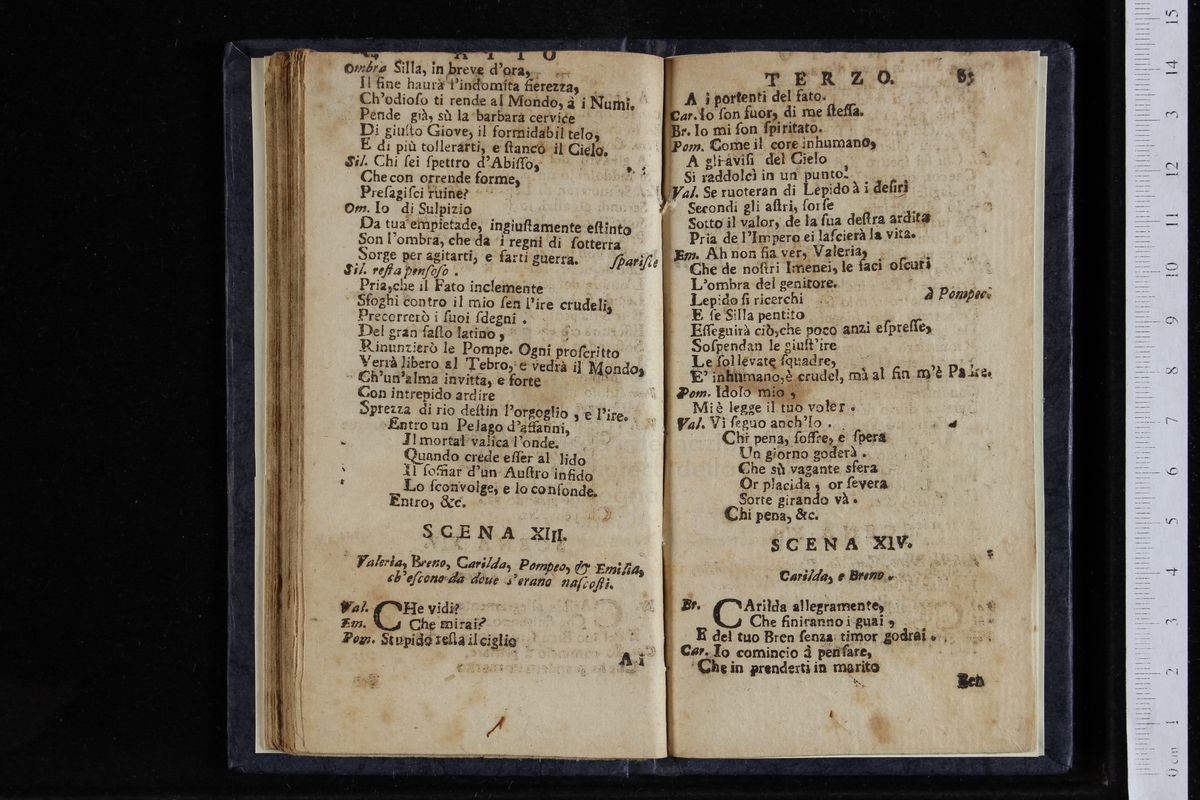 ATTO
Ombra Silla, in breve d'ora,
Il fine haurà l'indomita fierezza,
Ch'odioso ti rende al Mondo, à i Numi.
Pende già, sù la barbara cervice
Di giusto Giove, il formidabil telo,
E di più tollerarti, e stancò il Cielo.
Sil. Chi sei spettro d'Abisso,
Che con orrende forme,
Presagisci ruine?
Om. Io di Sulpizio
Da tua empietade, ingiustamente estinto
Son l'ombra, che da i regni di sotterra
Sorge per agitarti, e farti guerra. sparisce
Sil. resta pensoso.
Pria, che il Fato inclemente
Sfoghi contro il mio sen l'ire crudeli,
Precorrerò i suoi sdegni.
Del gran fasto latino,
Rinunzierò le Pompe. Ogni proscritto
Verrà libero al Tebro, e vedrà il Mondo,
Ch'un'alma invitta, e forte
Con intrepido ardire
Sprezza di rio destin l'orgoglio, e l'ire.
Entro un Pelago d'affanni,
Il mortal valica l'onde.
Quando crede esser al lido
Il soffiar d'un Austro infido
Lo sconvolge, e lo confonde.
Entro, &c.
SCENA XIII.
Valeria, Breno, Carilda, Pompeo, & Emilia,
ch'escono da doue s'erano nascosti.
Val. CHe vidi?
Em. Che mirai?
Pom. Stupido resta il ciglio
A i
TERZO. 65
A i portenti del fato.
Car. Io son fuor, di me stessa.
Br. Io mi son spiritato.
Pom. Come il core inhumano,
A gli avisi del Cielo
Si raddolcì in un punto!
Val. Se ruoteran di Lepido à i desiri
Secondi gli astri, forse
Sotto il valor, de la sua destra ardita
Pria de l'Impero ei lascierà la vita.
Em. Ah non fia ver, Valeria,
Che de nostri Imenei, le faci oscuri
L'ombra del genitore.
Lepido si ricerchi à Pompeo.
E se Silla pentito
Esseguirà ciò, che poco anzi espresse,
Sospendan le giust'ire
Le sollevate squadre,
E' inhumano, è crudel, mà al fin m'è Padre.
Pom. Idolo mio,
Mi è legge il tuo voler.
Val. Vi seguo anch'Io.
Chi pena, soffre, e spera
Un giorno goderà.
Che sù vagante sfera
Or placida, or severa
Sorte girando và.
Chi pena, &c.
SCENA XIV.
Carilda, e Breno.
Br. CArilda allegramente,
Che finiranno i guai,
E del tuo Bren senza timor godrai.
Car. Io comincio à pensare,
Che in prenderti in marito
Ben
0 cm 1 2 3 4 5 6 7 8 9 10 11 12 13 14 15